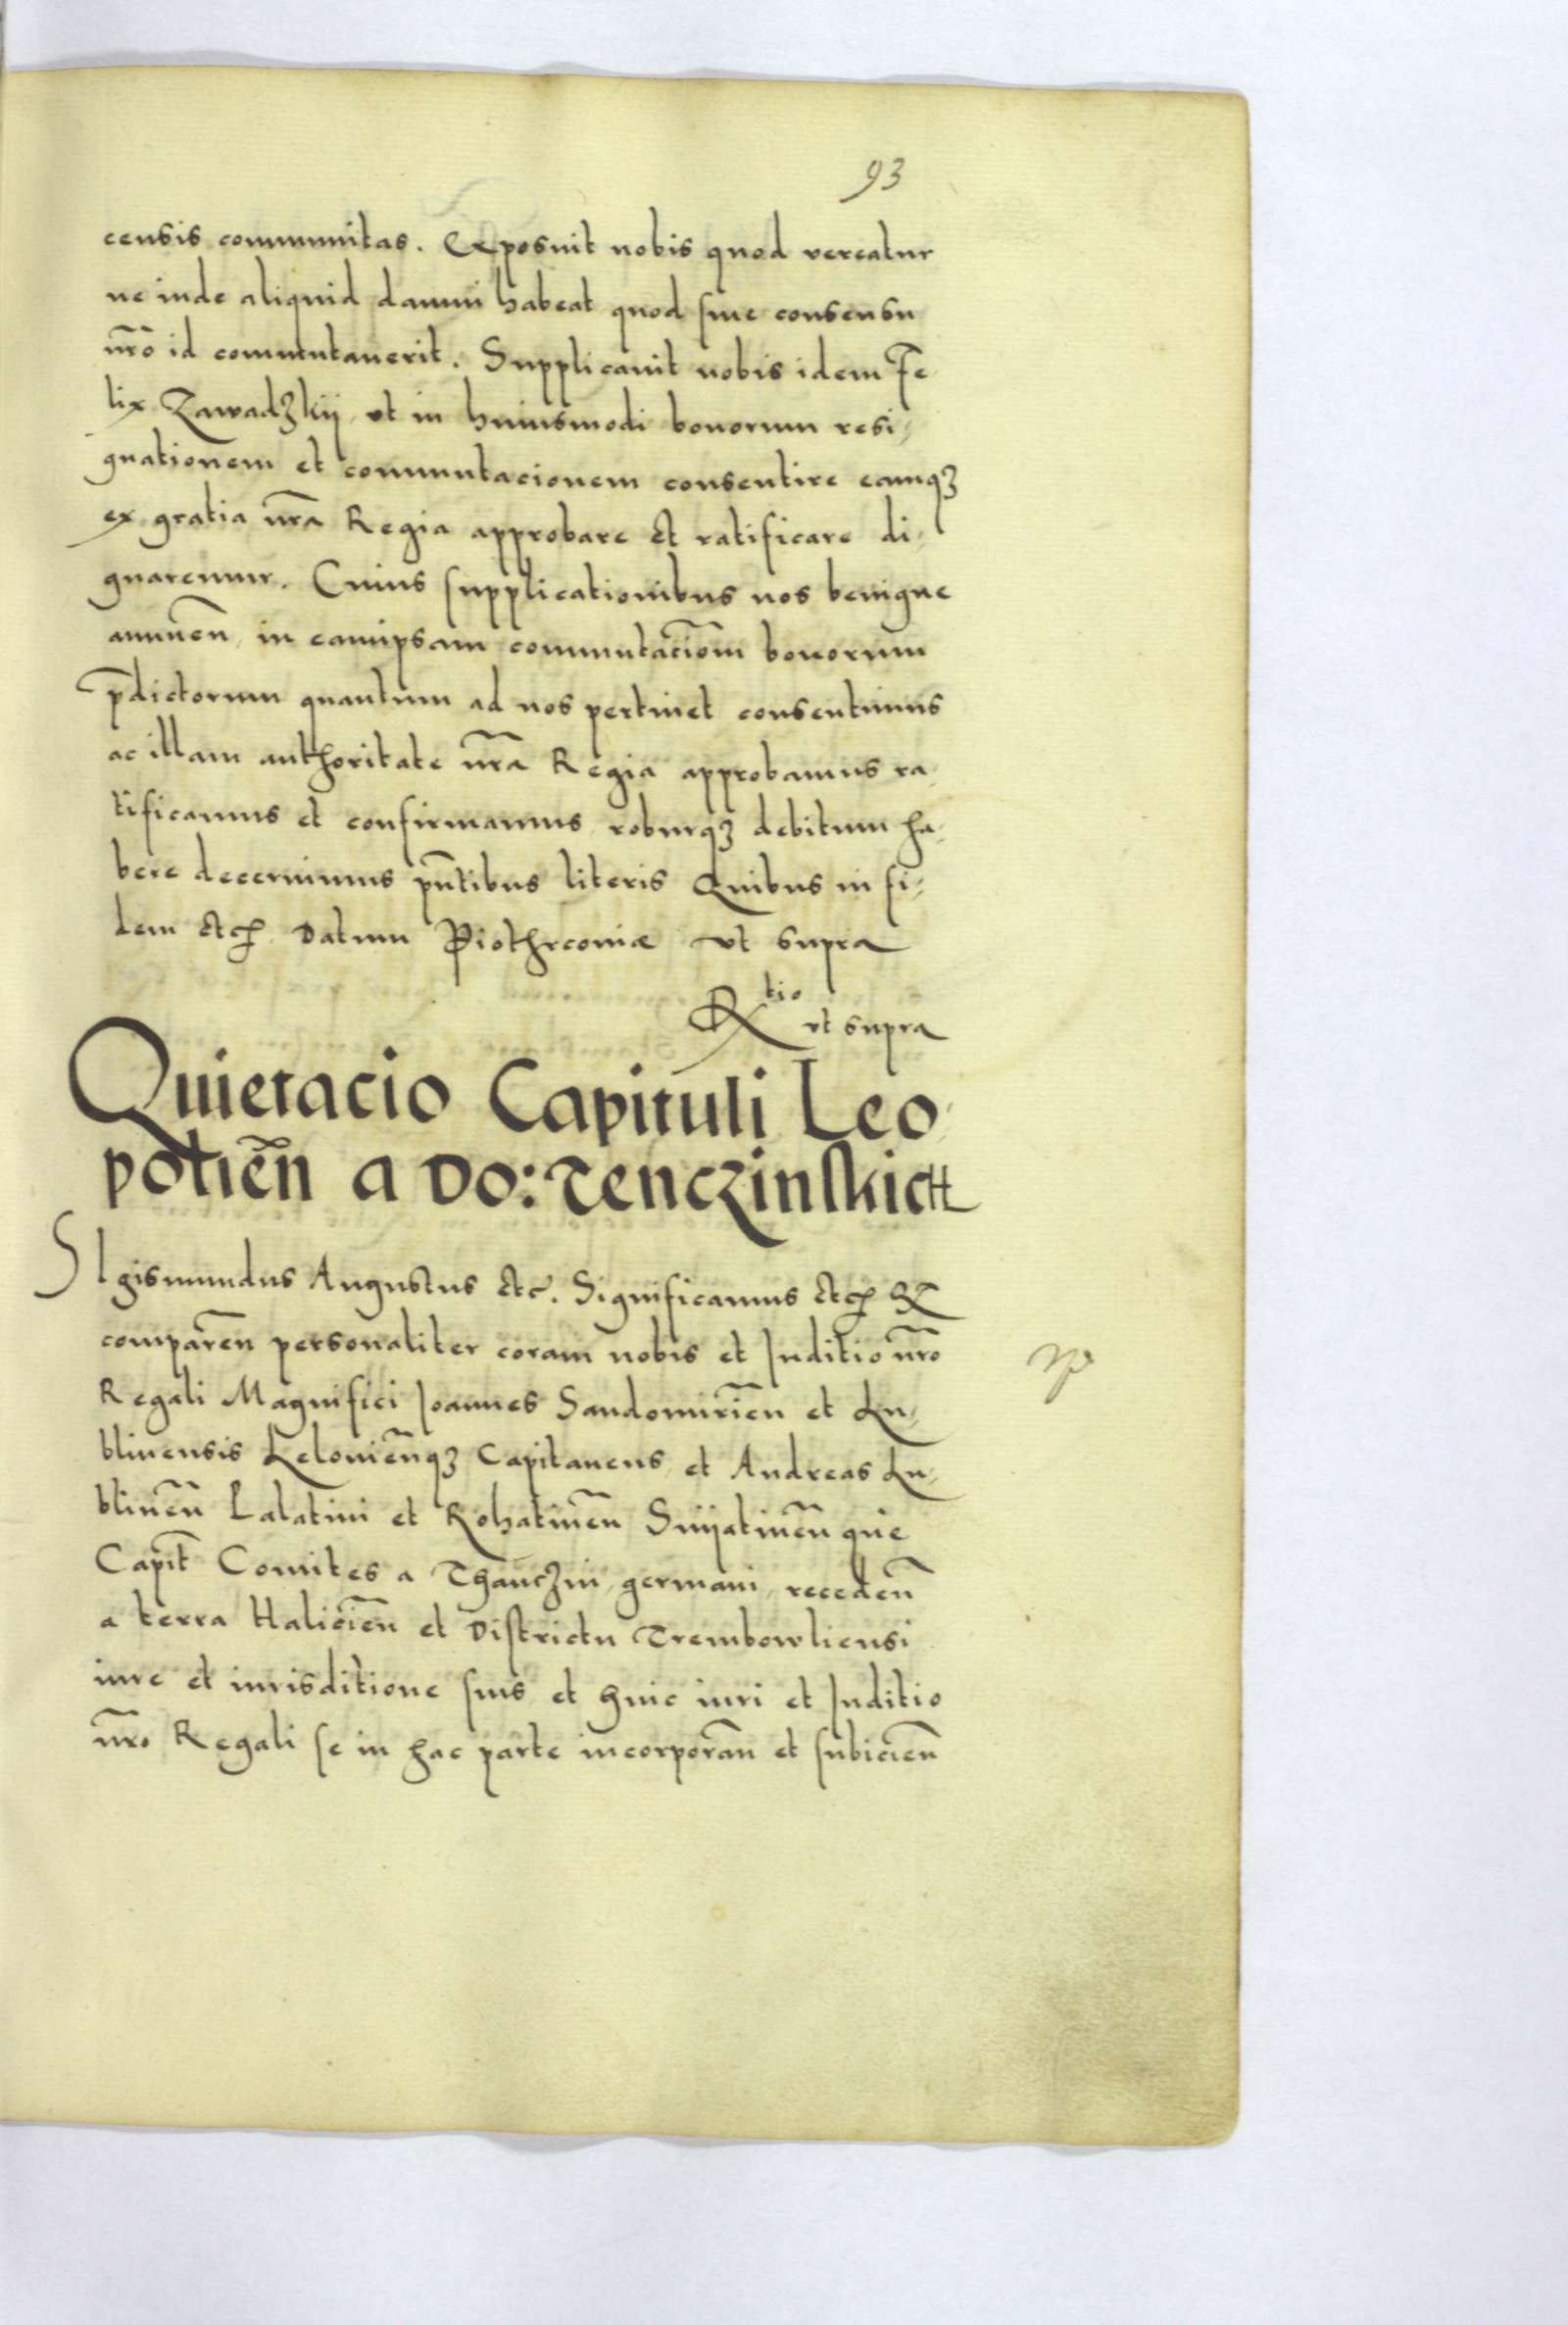 93
censis communitas. Exposuit nobis quod vereatur
ne inde aliquid damni habeat quod sine consensu
nr̃o id commutauerit. Supplicauit nobis idem Fe
lix Zawadzkij vt in huiusmodi bonorum resi,
gnationem et commutacionem consentire eamqꝫ
ex gratia nr̃a Regia approbare et ratificare di,
gnaremur. Cuius supplicationibus nos benigne
annuen̄ in eamipsam commutac̄iom bonorum
p̄dictorum quantum ad nos pertinet consentimus
ac illam authoritate nr̃a Regia approbamus ra,
tificamus et confirmamus roburqꝫ debitum ha,
bere decernimus pn̄tibus literis Quibus in fi,
dem etcꝫ Datum Piothrcouiæ vt supra
R tio vt supra
Quietacio Capituli Leo,
polien̄ a Do: Tenczinskich
SIgismundus Augustus etc. Significamus etcꝫ Qꝫ
comparen̄ personaliter coram nobis et Juditio nr̃o
Regali Magnifici Joannes Sandomirien̄ et Lu,
blinensis Belonien̄qꝫ Capitaneus et Andreas Lu,
blinen̄ Palatini et Rohatinen̄ Snijatinen̄ que
Capit̄ Comites a Thanczin germani receden̄
a terra Halicien̄ et Districtu Trembowliensi
iure et iurisditione suis et huic iuri et Juditio
nr̃o Regali se in hac parte incorporan̄ et subicien̄